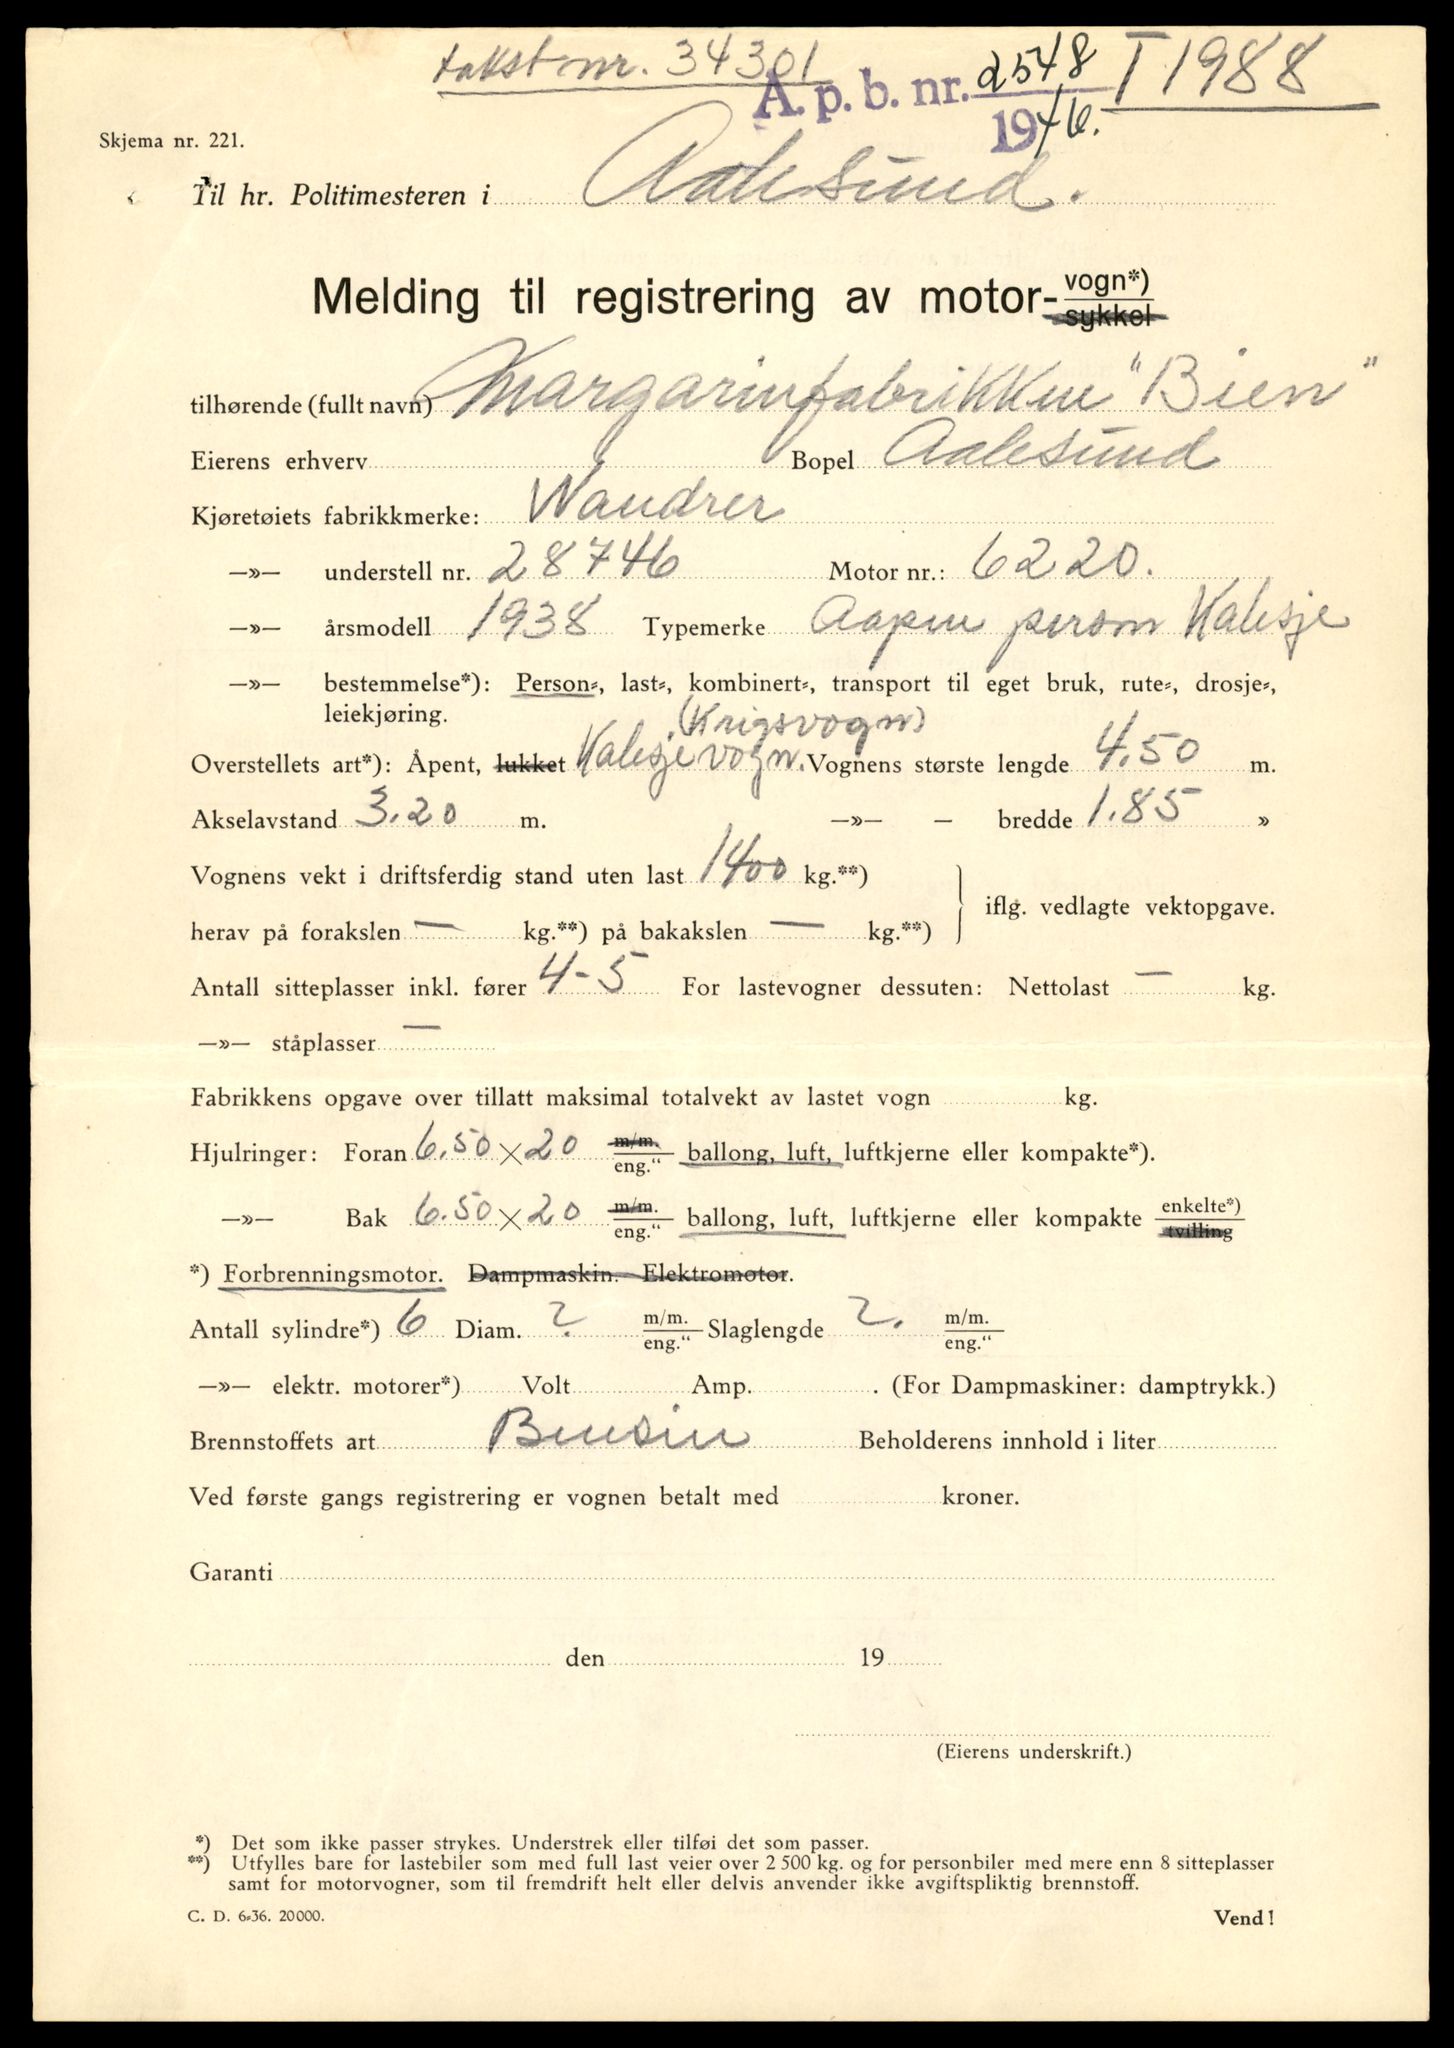 takst nr. 34301
A. p. b. nr. 2548 I 1988
1946.
Skjema nr. 221.
Til hr. Politimesteren i Aalesund.
Melding til registrering av motor- vogn*)
sykkel
tilhørende (fullt navn) Margarinfabrikken "Bien"
Eierens erhverv Bopel Aalesund
Kjøretøiets fabrikkmerke: Wandrer
—»— understell nr. 28746 Motor nr.: 6220.
—»— årsmodell 1938 Typemerke Aapen person Kalesje
—»— bestemmelse*): Person-, last-, kombinert-, transport til eget bruk, rute-, drosje-,
leiekjøring.
(Krigsvogn)
Overstellets art*): Åpent, lukket Kalesjevogn. Vognens største lengde 4.50 m.
Akselavstand 3.20 m. —»— — bredde 1.85 »
Vognens vekt i driftsferdig stand uten last 1400 kg.**)
iflg. vedlagte vektopgave.
herav på forakslen — kg.**) på bakakslen — kg.**)
Antall sitteplasser inkl. fører 4-5 For lastevogner dessuten: Nettolast — kg.
—»— ståplasser —
Fabrikkens opgave over tillatt maksimal totalvekt av lastet vogn kg.
Hjulringer: Foran 6.50 × 20 m/m. eng." ballong, luft, luftkjerne eller kompakte*).
—»— Bak 6.50 × 20 m/m. eng." ballong, luft, luftkjerne eller kompakte enkelte*) tvilling
*) Forbrenningsmotor. Dampmaskin. Elektromotor.
Antall sylindre*) 6 Diam. ? m/m. eng." Slaglengde ?. m/m. eng."
—»— elektr. motorer*) Volt Amp. . (For Dampmaskiner: damptrykk.)
Brennstoffets art Bensin Beholderens innhold i liter
Ved første gangs registrering er vognen betalt med kroner.
Garanti
den 19
(Eierens underskrift.)
*) Det som ikke passer strykes. Understrek eller tilføi det som passer.
**) Utfylles bare for lastebiler som med full last veier over 2 500 kg. og for personbiler med mere enn 8 sitteplasser
samt for motorvogner, som til fremdrift helt eller delvis anvender ikke avgiftspliktig brennstoff.
C. D. 6-36. 20 000. Vend!